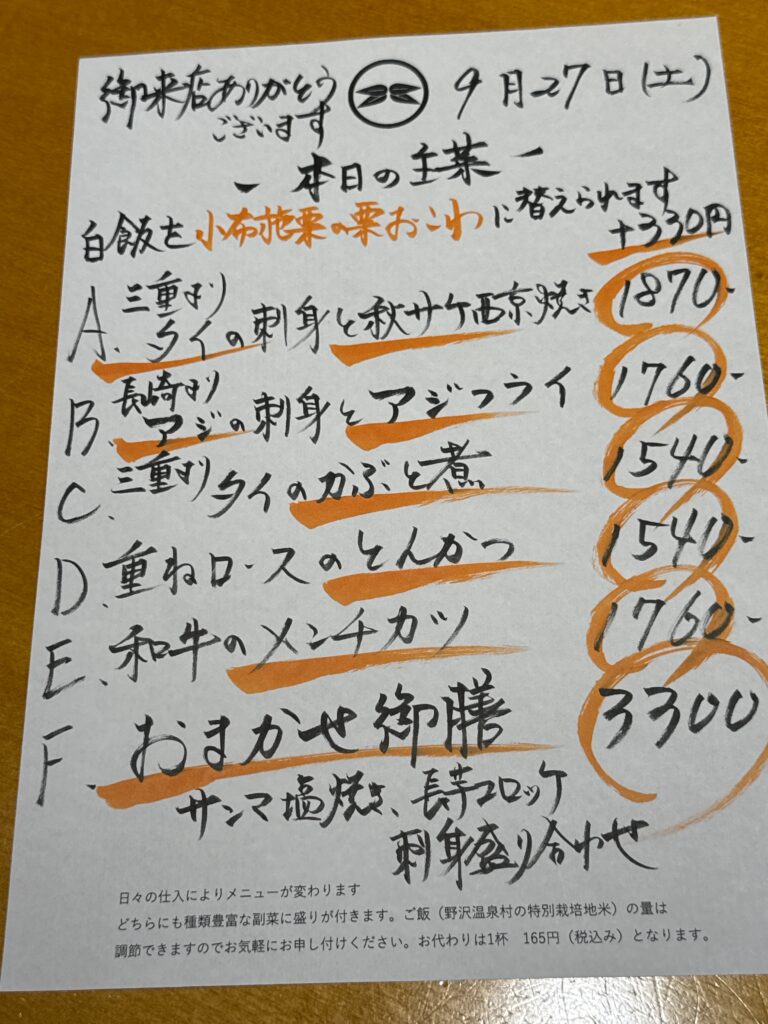 御来店ありがとう
ございます
9月27日(土)
- 本日の主菜 -
白飯を小布施栗の栗おこわに替えられます
+330円
A. 三重より
タイの刺身と秋サケ西京焼き 1870-
B. 長崎より
アジの刺身とアジフライ 1760-
C. 三重より タイのかぶと煮 1540-
D. 重ねロースのとんかつ 1540-
E. 和牛のメンチカツ 1760-
F. おまかせ御膳 3300
サンマ塩焼き、長芋コロッケ
刺身盛り合わせ
日々の仕入によりメニューが変わります
どちらにも種類豊富な副菜に盛りが付きます。ご飯(野沢温泉村の特別栽培地米)の量は
調節できますのでお気軽にお申し付けください。お代わりは1杯 165円(税込み)となります。